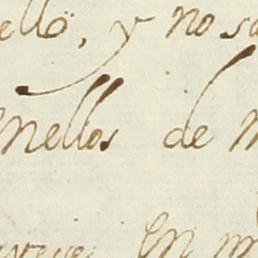 ello, y no sa
enellos de m
En m